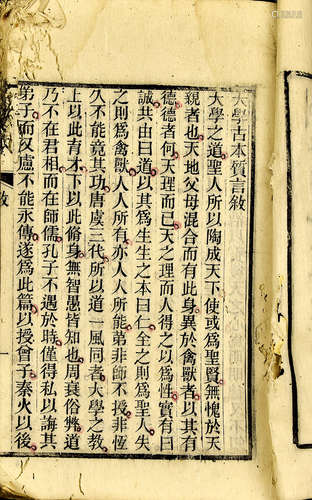 大學古本質言敘
大學之道聖人所以陶成天下使咸為聖賢無愧於天
親者也天地父母混合而有此身異於禽獸者以其有
德德者何天理而已天之理而人得之以為性實有曰
誠共由曰道以其為生生之本曰仁全之則為聖人失
之則為禽獸人人所有亦人人所能弟非師不授非恆
久不能竟其功唐虞三代所以道一風同者大學之教
上以此育才下以此脩身無智愚皆知也周衰俗獘道
乃不在君相而在師儒孔子不遇於時僅得私以誨其
弟子而又慮不能永傳遂為此篇以授曾子秦火以後
敘